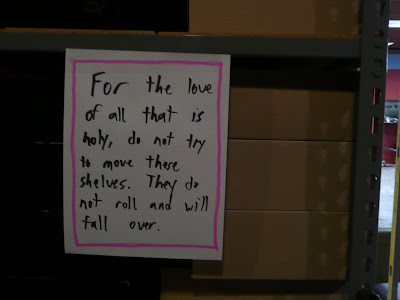 For the love
of all that is
holy, do not try
to move these
shelves. They do
not roll and will
fall over.